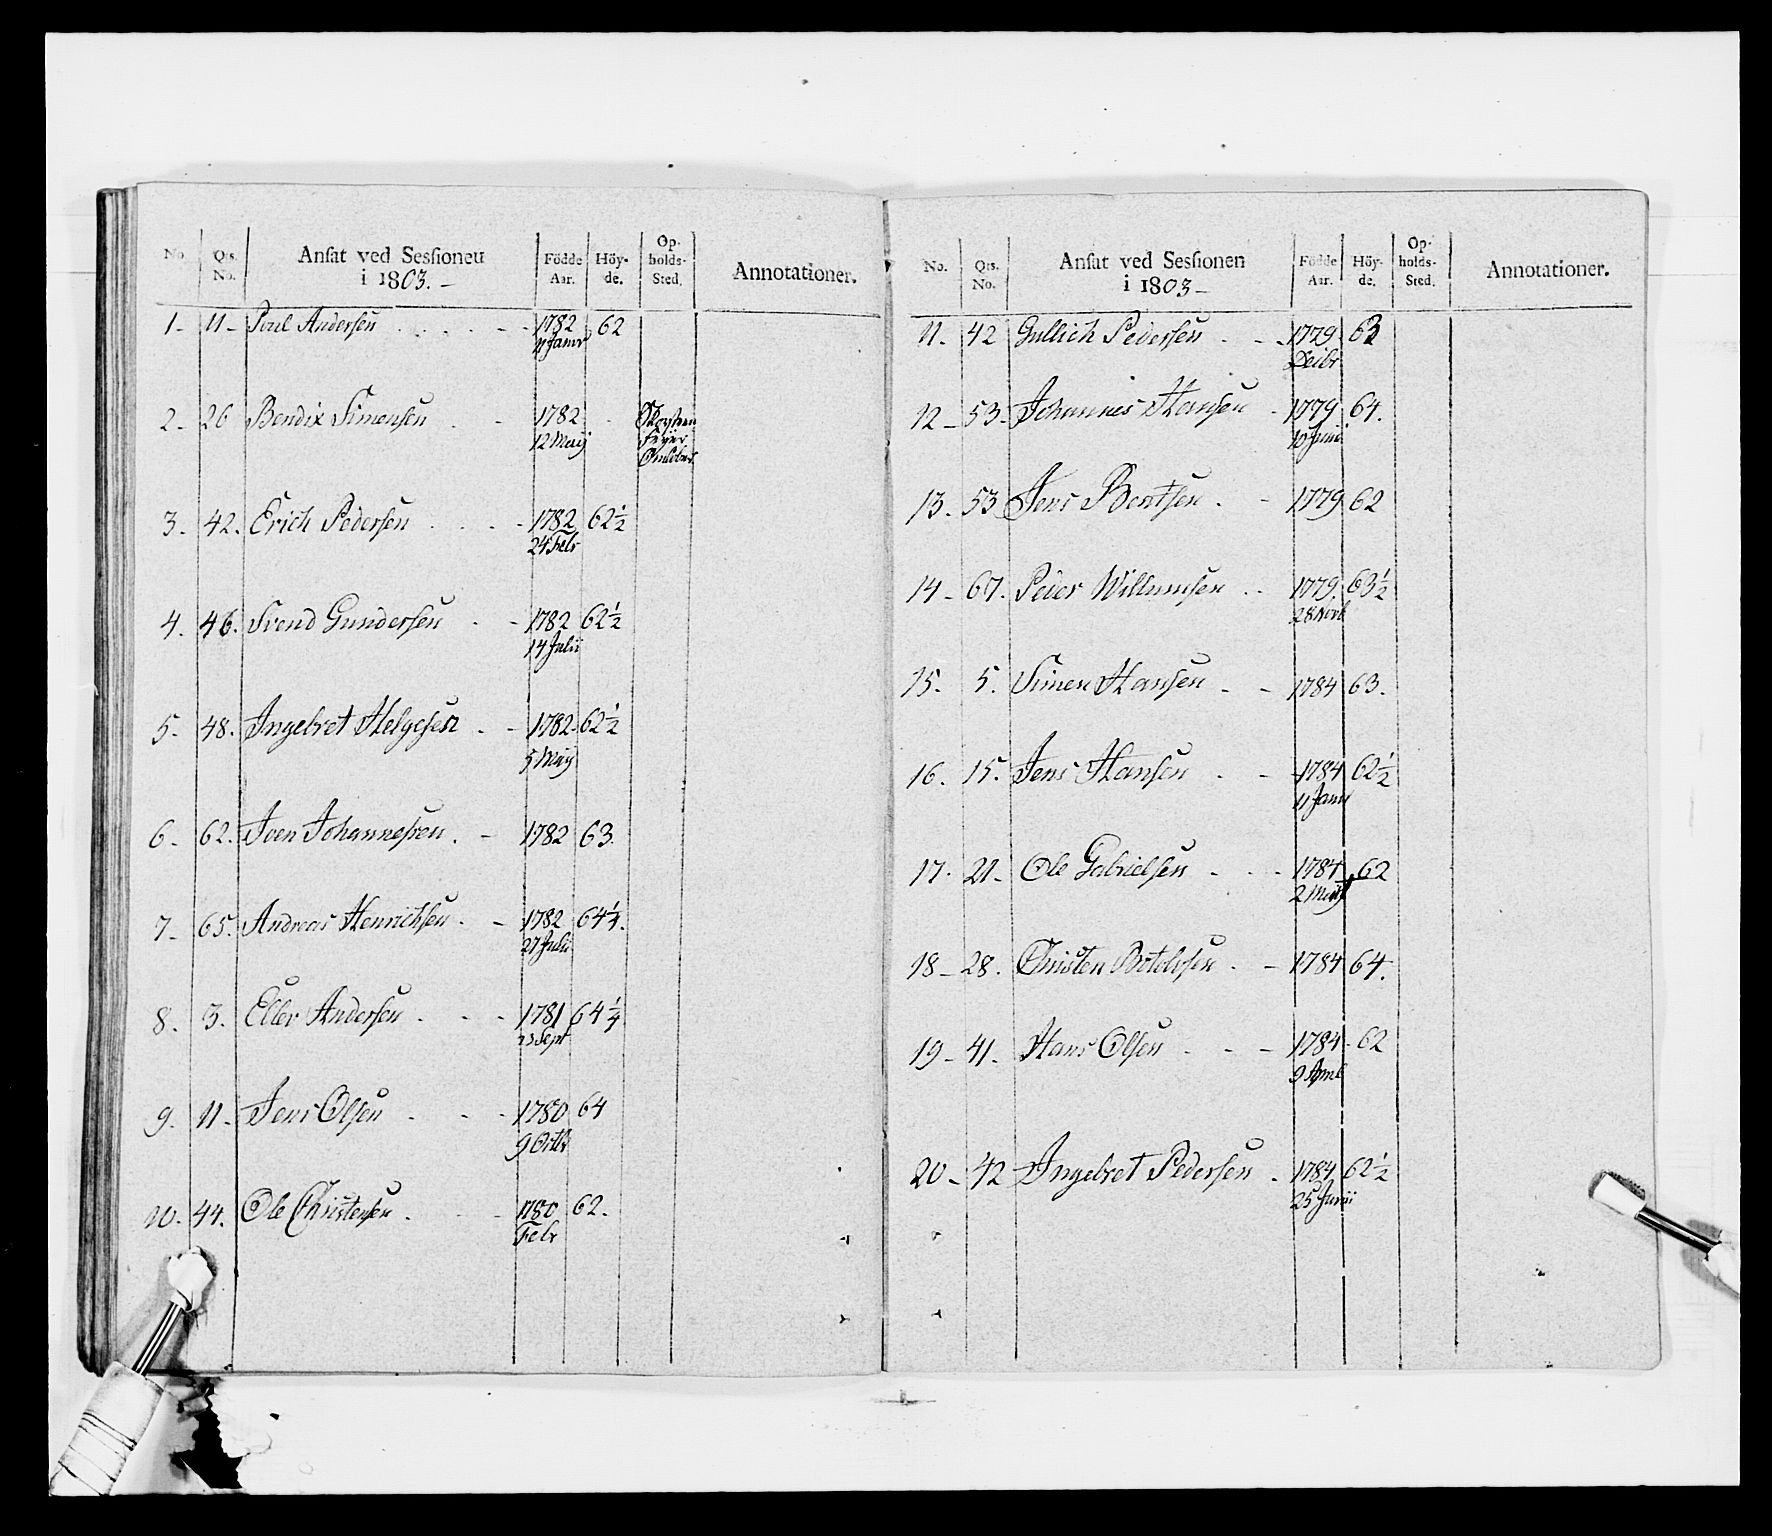 No. Qts. No. Ansat ved Sessionen i 1803. Födde Aar. Höyde. Opholds-Sted. Annotationer.
1- 11- Poul Andersen 1782 62
11 Janr
2. 26 Bendix Simensen 1782
12 Maij
3. 42. Erich Pedersen 1782 62½
24 Febr
4. 46. Svend Gundersen 1782 62½
14 Julii
5. 48. Ingebret Helgesen 1782. 62½
5 Maij
6. 62. Iven Johannessen 1782 63.
7- 65. Andreas Henrichsen 1782 64¼.
27 Julii
8. 3. Eller Andersen 1781 64¼
Sept
9. 11- Jens Olsen 1780 64
9 Octbr
10. 44. Ole Christensen 1780 62.
Febr
No. Qts. No. Ansat ved Sessionen i 1803 Födde Aar. Höyde. Opholds-Sted. Annotationer.
11. 42 Gullich Pedersen 1779 63
12- 53. Johannes Hansen 1779 64.
10 Junii
13. 53 Jens Bentsen 1779 62
14- 67. Peder Willumsen 1779. 63½
28 Novb
15. 5. Simen Hansen 1784 63.
16. 15. Jens Hansen 1784 62½
11 Janr
17. 21- Ole Gabrielsen 1784 62
2 Martj
18- 28. Christen Botolvsen 1784 64.
19- 41. Hans Olsen 1784 62
9 April
20- 42 Ingebret Pedersen 1784 62½
25 Junii